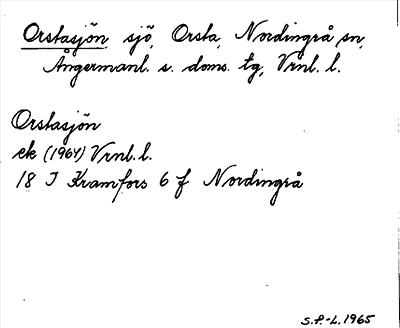 Orstasjön, sjö, Orsta, Nordingrå sn,
Ångermanl. s. doms. tg, Vrnl. l.
Orstasjön
ek (1964) Vrnl. l.
18 I Kramfors 6 f Nordingrå
S.P.-L. 1965